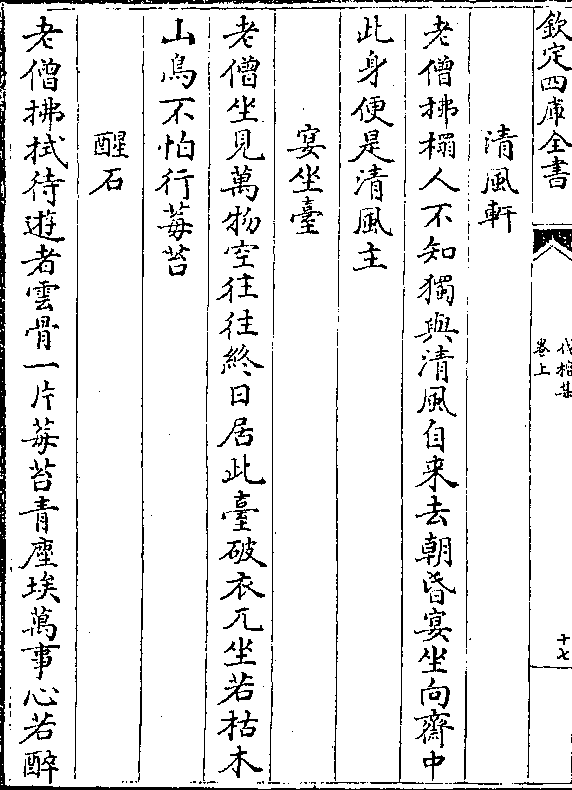 欽定四庫全書
伐檀集
卷上
十七
清風軒
老僧拂榻人不知獨與清風自来去朝昏宴坐向齋中
此身便是清風主
宴坐臺
老僧坐見萬物空往往終日居此臺破衣兀坐若枯木
山鳥不怕行莓苔
醒石
老僧拂拭待遊者雲骨一片莓苔青塵埃萬事心若醉